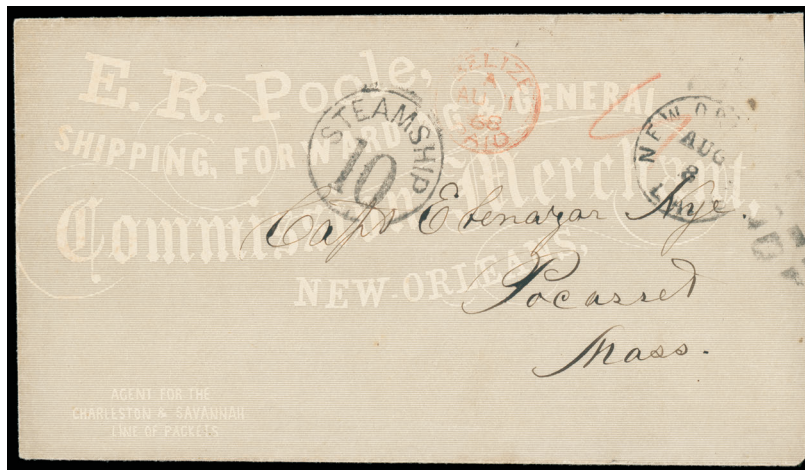 E. R. Poole,
SHIPPING, FORWARDING & GENERAL
Commission Merchant,
NEW-ORLEANS,
STEAMSHIP
10
AU 1
68
PAID
NEW OR
AUG
8
LA
Capt Ebenazar Nye.
Pocasset
Mass.
AGENT FOR THE
CHARLESTON & SAVANNAH
LINE OF PACKETS